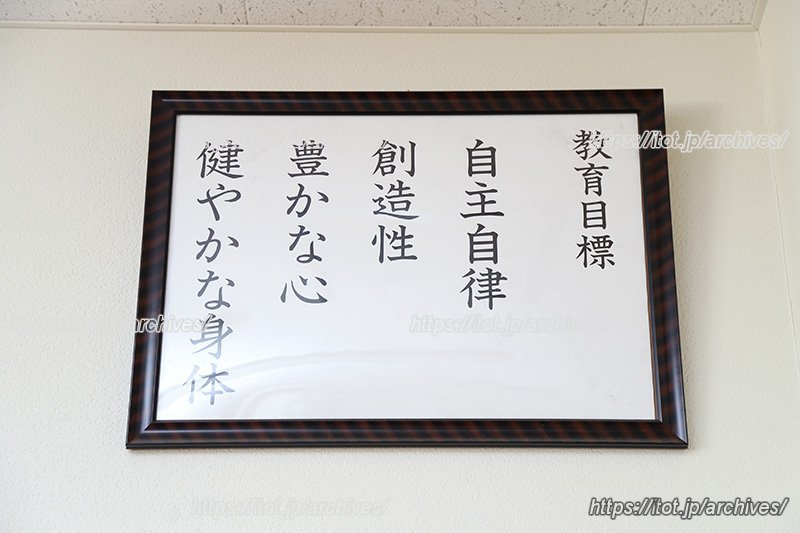 教育目標
自主自律
創造性
豊かな心
健やかな身体
https://itot.jp/archives/
https://itot.jp/archives/
https://itot.jp/archives/
https://itot.jp/archives/